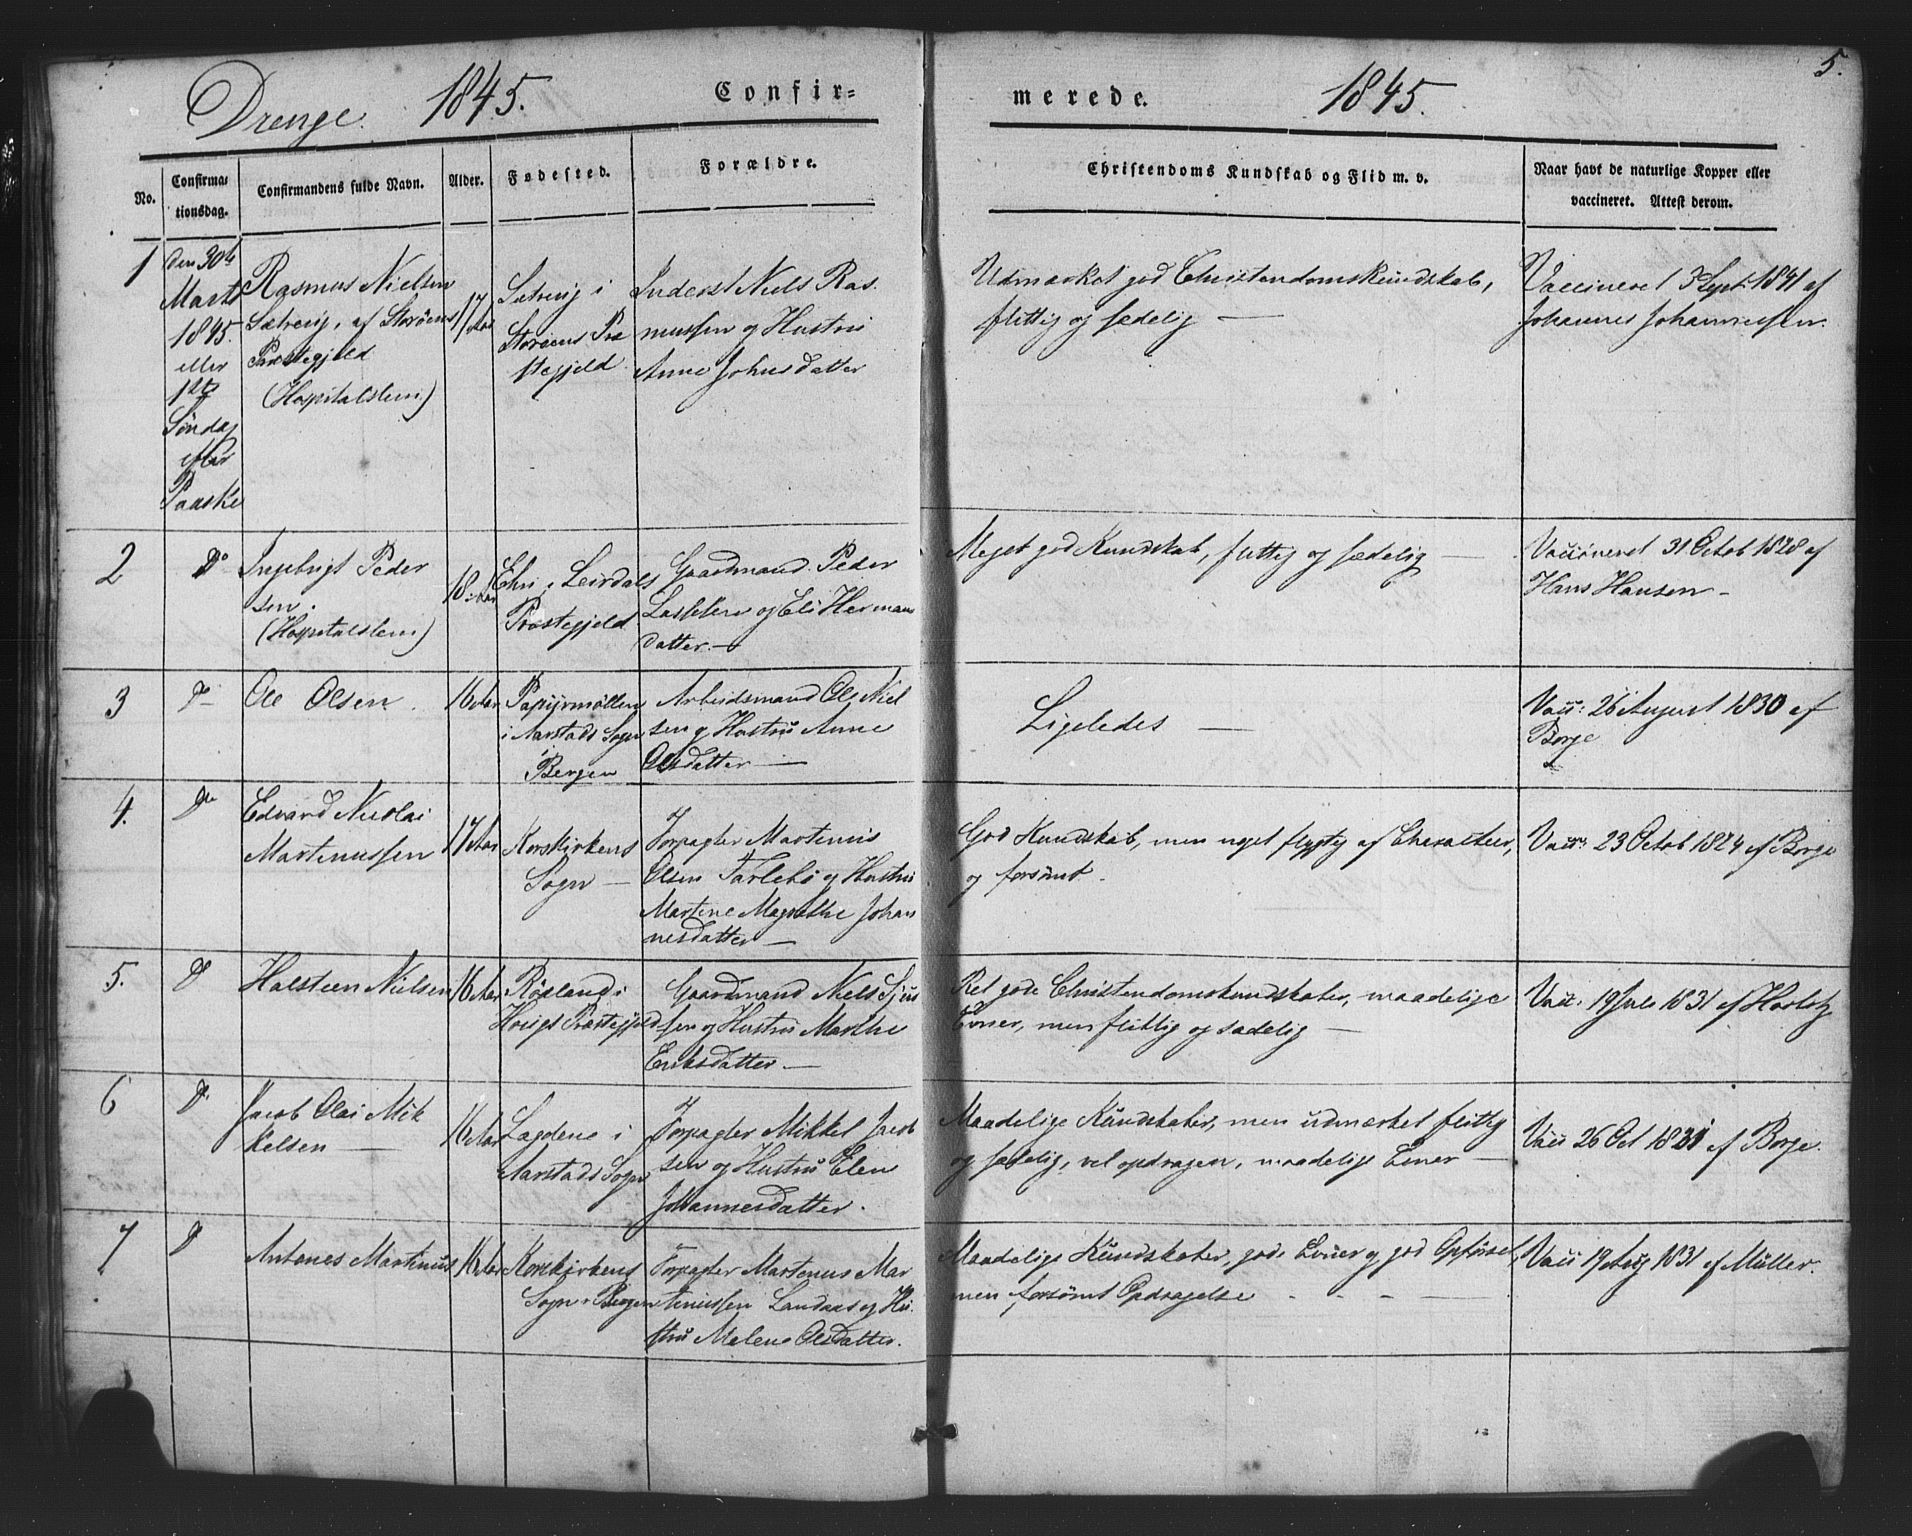 5.
Drenge. 1845. Confir-
merede. 1845.
No.
Confirma-
tionsdag.
Confirmandens fulde Navn.
Alder.
Fødested.
Forældre.
Christendoms Kundskab og Flid m. v.
Naar havt de naturlige Kopper eller
vaccineret. Attest derom.
1
den 30te
Marts
1845.
eller
1ste
Søndag
efter
Paaske
Rasmus Nielsen
Sætrevig, af Storøens
Præstegjeld
(Hospitalslem.)
17 Aar
Sætrevig i
Storøens Præ
stegjeld
Inderst Niels Ras
mussen og Hustru
Anne Johnsdatter
Udmærket god Christendomskundskab,
flittig og sædelig
Vaccineret 3 Sept: 1841 af
Johannes Johannessen.
2
Do
Ingebrigt Peder
sen.
(Hospitalslem)
18 Aar
i Leirdals
Præstegjeld
Gaardmand Peder
Lassesen og Eli Herman
datter.
Meget god Kundskab, flittig og sædelig
Vaccineret 31 Octob 1828 af
Hans Hansen
3
Do
Ole Olsen.
16 Aar
Papiirmøllen
i Aarstads Sogn
Bergen
Arbeidsmand Ole Niel
sen og Hustru Anne
Olsdatter
Ligeledes
Vacc: 26 August 1830 af
Borge
4.
Do
Edvard Nicolai
Martinussen
17 Aar
Korskirkens
Sogn
Forpagter Martinus
Olsen og Hustru
Martine Magrethe Johan
nesdatter
God Kundskab, men noget flygtig af Charakteer,
og forsømt.
Vacc: 23 Octob 1824 af Borge
5.
Do
Halsteen Nielsen
16 Aar
Røsland i
Præstegjeld
Gaardmand Niels Sjur
sen og Hustru Marthe
Eriksdatter
Ret gode Christendomskundskaber, maadelige
Evner, men flittig og sædelig
Vacc: 19 Juli 1831 af
6
Do
Jacob Olai Mik
kelsen
16 Aar
Lægdene i
Aarstads Sogn
Forpagter Mikkel Jacob
sen og Hustru Elen
Johannesdatter.
Maadelige Kundskaber, men udmærket flittig
og sædelig, vel opdragen, maadelige Evner
Vacc 26 Oct 1831 af Borge.
7
Do
Antones Martinus
16 Aar
Korskirkens
Sogn i Bergen
Forpagter Martinus Mar
tinussen Landaas og Hu
stru Malene Olsdatter.
Maadelige Kundskaber, gode Evner og god Opførsel,
men forsømt Opdragelse
Vacc 19 Aug 1831 af Müller.